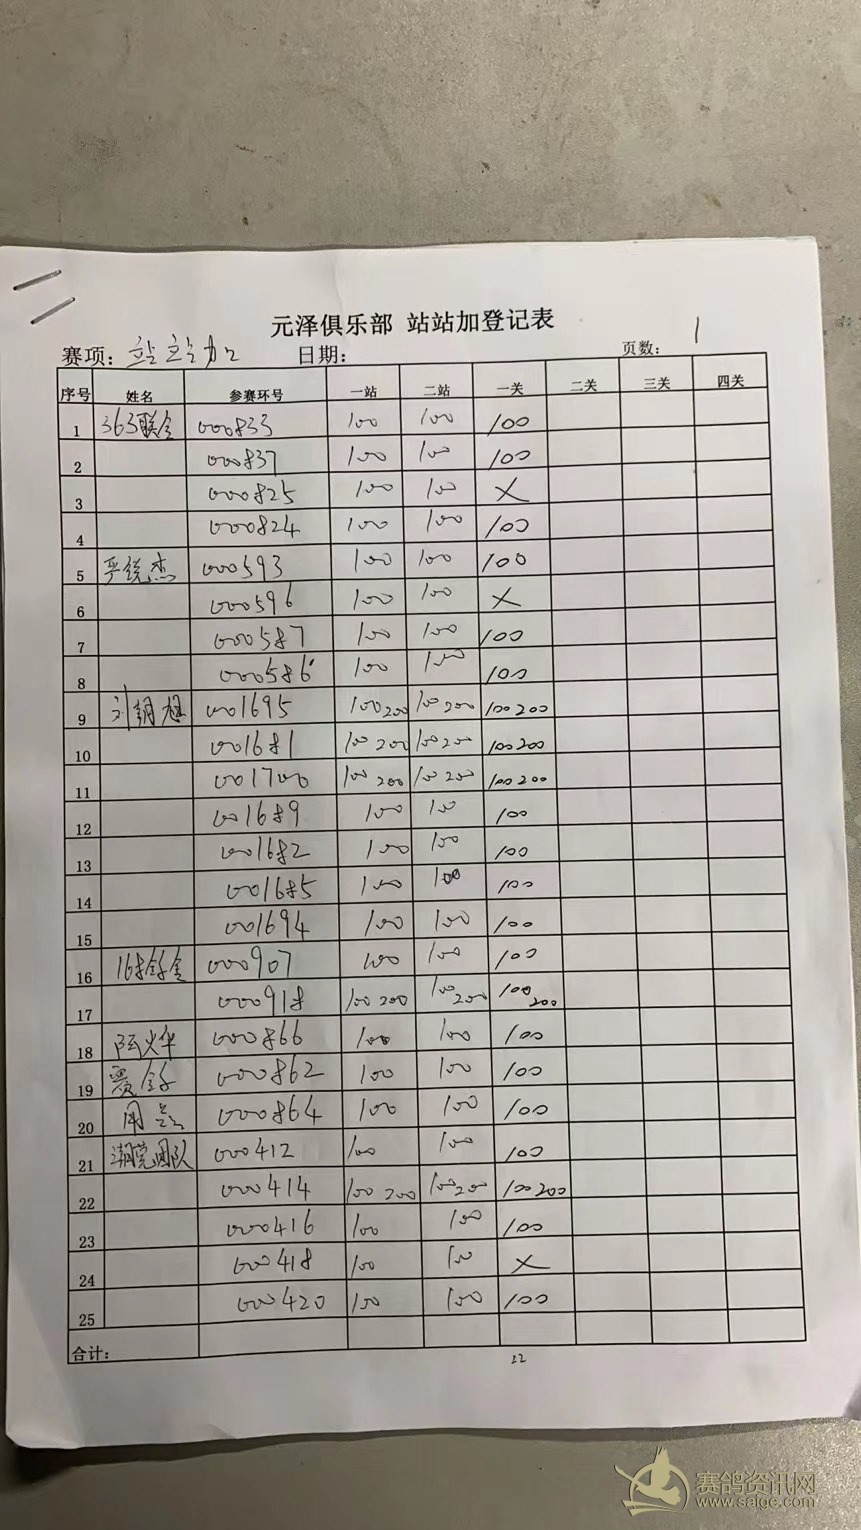 元泽俱乐部 站站加登记表
赛项: 站站加 日期: 页数: 1
序号 姓名 参赛环号 一站 二站 一关 二关 三关 四关
1 363联合 000833 100 100 100
2 000837 100 100 100
3 000825 100 100 X
4 000824 100 100 100
5 严锐杰 000593 100 100 100
6 000596 100 100 X
7 000587 100 100 100
8 000586 100 100 100
9 001695 100 200 100 200 100 200
10 001681 100 200 100 200 100 200
11 001700 100 200 100 200 100 200
12 001689 100 100 100
13 001682 100 100 100
14 001685 100 100 100
15 001694 100 100 100
16 168 000907 100 100 100
17 000918 100 200 100 200 100 200
18 000866 100 100 100
19 000862 100 100 100
20 000864 100 100 100
21 潮莞团队 000412 100 100 100
22 000414 100 200 100 200 100 200
23 000416 100 100 100
24 000418 100 100 X
25 000420 100 100 100
合计:
22
赛鸽资讯网
www.saige.com